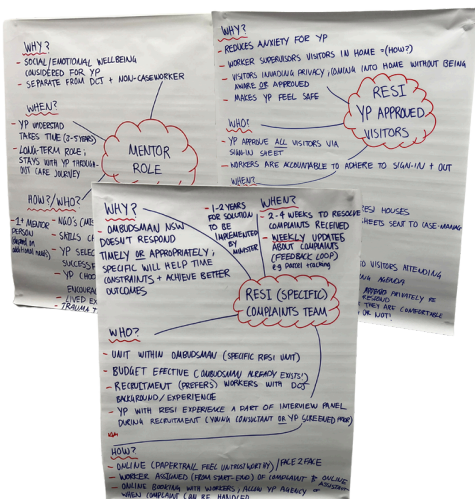 WHY?
- SOCIAL/EMOTIONAL WELLBEING
CONSIDERED FOR YP
- SEPARATE FROM DCJ + NON-CASEWORKER
WHEN?
- YP UNDERSTAD
TAKES TIME (2-5 YEARS)
- LONG-TERM ROLE,
STAYS WITH YP THROUGH-
OUT CARE JOURNEY
MENTOR
ROLE
HOW?/WHO?
- 1+ MENTOR
PERSON
- NGO'S
- SKILLS
- YP SELEC
SUCCESSF
- YP CHOO
ENCOURA
LIVED EX
TRAUMA
WHY?
- REDUCES ANXIETY FOR YP
- WORKER SUPERVISORS VISITORS IN HOME = (HOW?)
- VISITORS INVADING PRIVACY, COMING INTO HOME WITHOUT BEING
AWARE OR APPROVED
- MAKES YP FEEL SAFE
RESI
YP APPROVED
VISITORS
WHO?
- YP APPROVE ALL VISITORS VIA
SIGN-IN SHEET
- WORKERS ARE ACCOUNTABLE TO ADHERE TO SIGN-IN + OUT
WHEN?
RESI HOUSES
SHEETS SENT TO CASE-MANAG
TO VISITORS ATTENDING
AGENDA)
PRIVATELY BE
RESPOND
THEY ARE COMFORTABLE
OR NOT!
WHY?
- OMBUDSMAN NSW
DOESN'T RESPOND
TIMELY OR APPROPRIATELY,
SPECIFIC WILL HELP TIME
CONSTRAINTS + ACHIEVE BETTER
OUTCOMES
1-2 YEARS
FOR SOLUTION
TO BE
IMPLEMENTED
BY MINISTER
WHEN?
- 2-4 WEEKS TO RESOLVE
COMPLAINTS RECEIVED
- WEEKLY UPDATES
ABOUT COMPLAINTS
(FEEDBACK LOOP)
eg parcel tracking
RESI (SPECIFIC)
COMPLAINTS TEAM
WHO?
- UNIT WITHIN OMBUDSMAN (SPECIFIC RESI UNIT)
- BUDGET EFECTIVE (OMBUDSMAN ALREADY EXISTS!)
- RECRUITMENT (PREFERS) WORKERS WITH DCJ
BACKGROUND/EXPERIENCE
- YP WITH RESI EXPERIENCE A PART OF INTERVIEW PANEL
DURING RECRUITMENT (YOUNG CONSULTANT OR YP SCREENED PRIOR)
HOW?
- ONLINE (PAPERTRAIL FEEL UNTRUSTWORTHY)/FACE2FACE
- WORKER ASSIGNED (FROM START-END) OF COMPLAINT
- ONLINE BOOKING WITH WORKERS, ALLOW YP AGENCY
WHEN COMPLAINT CAN BE HANDLED